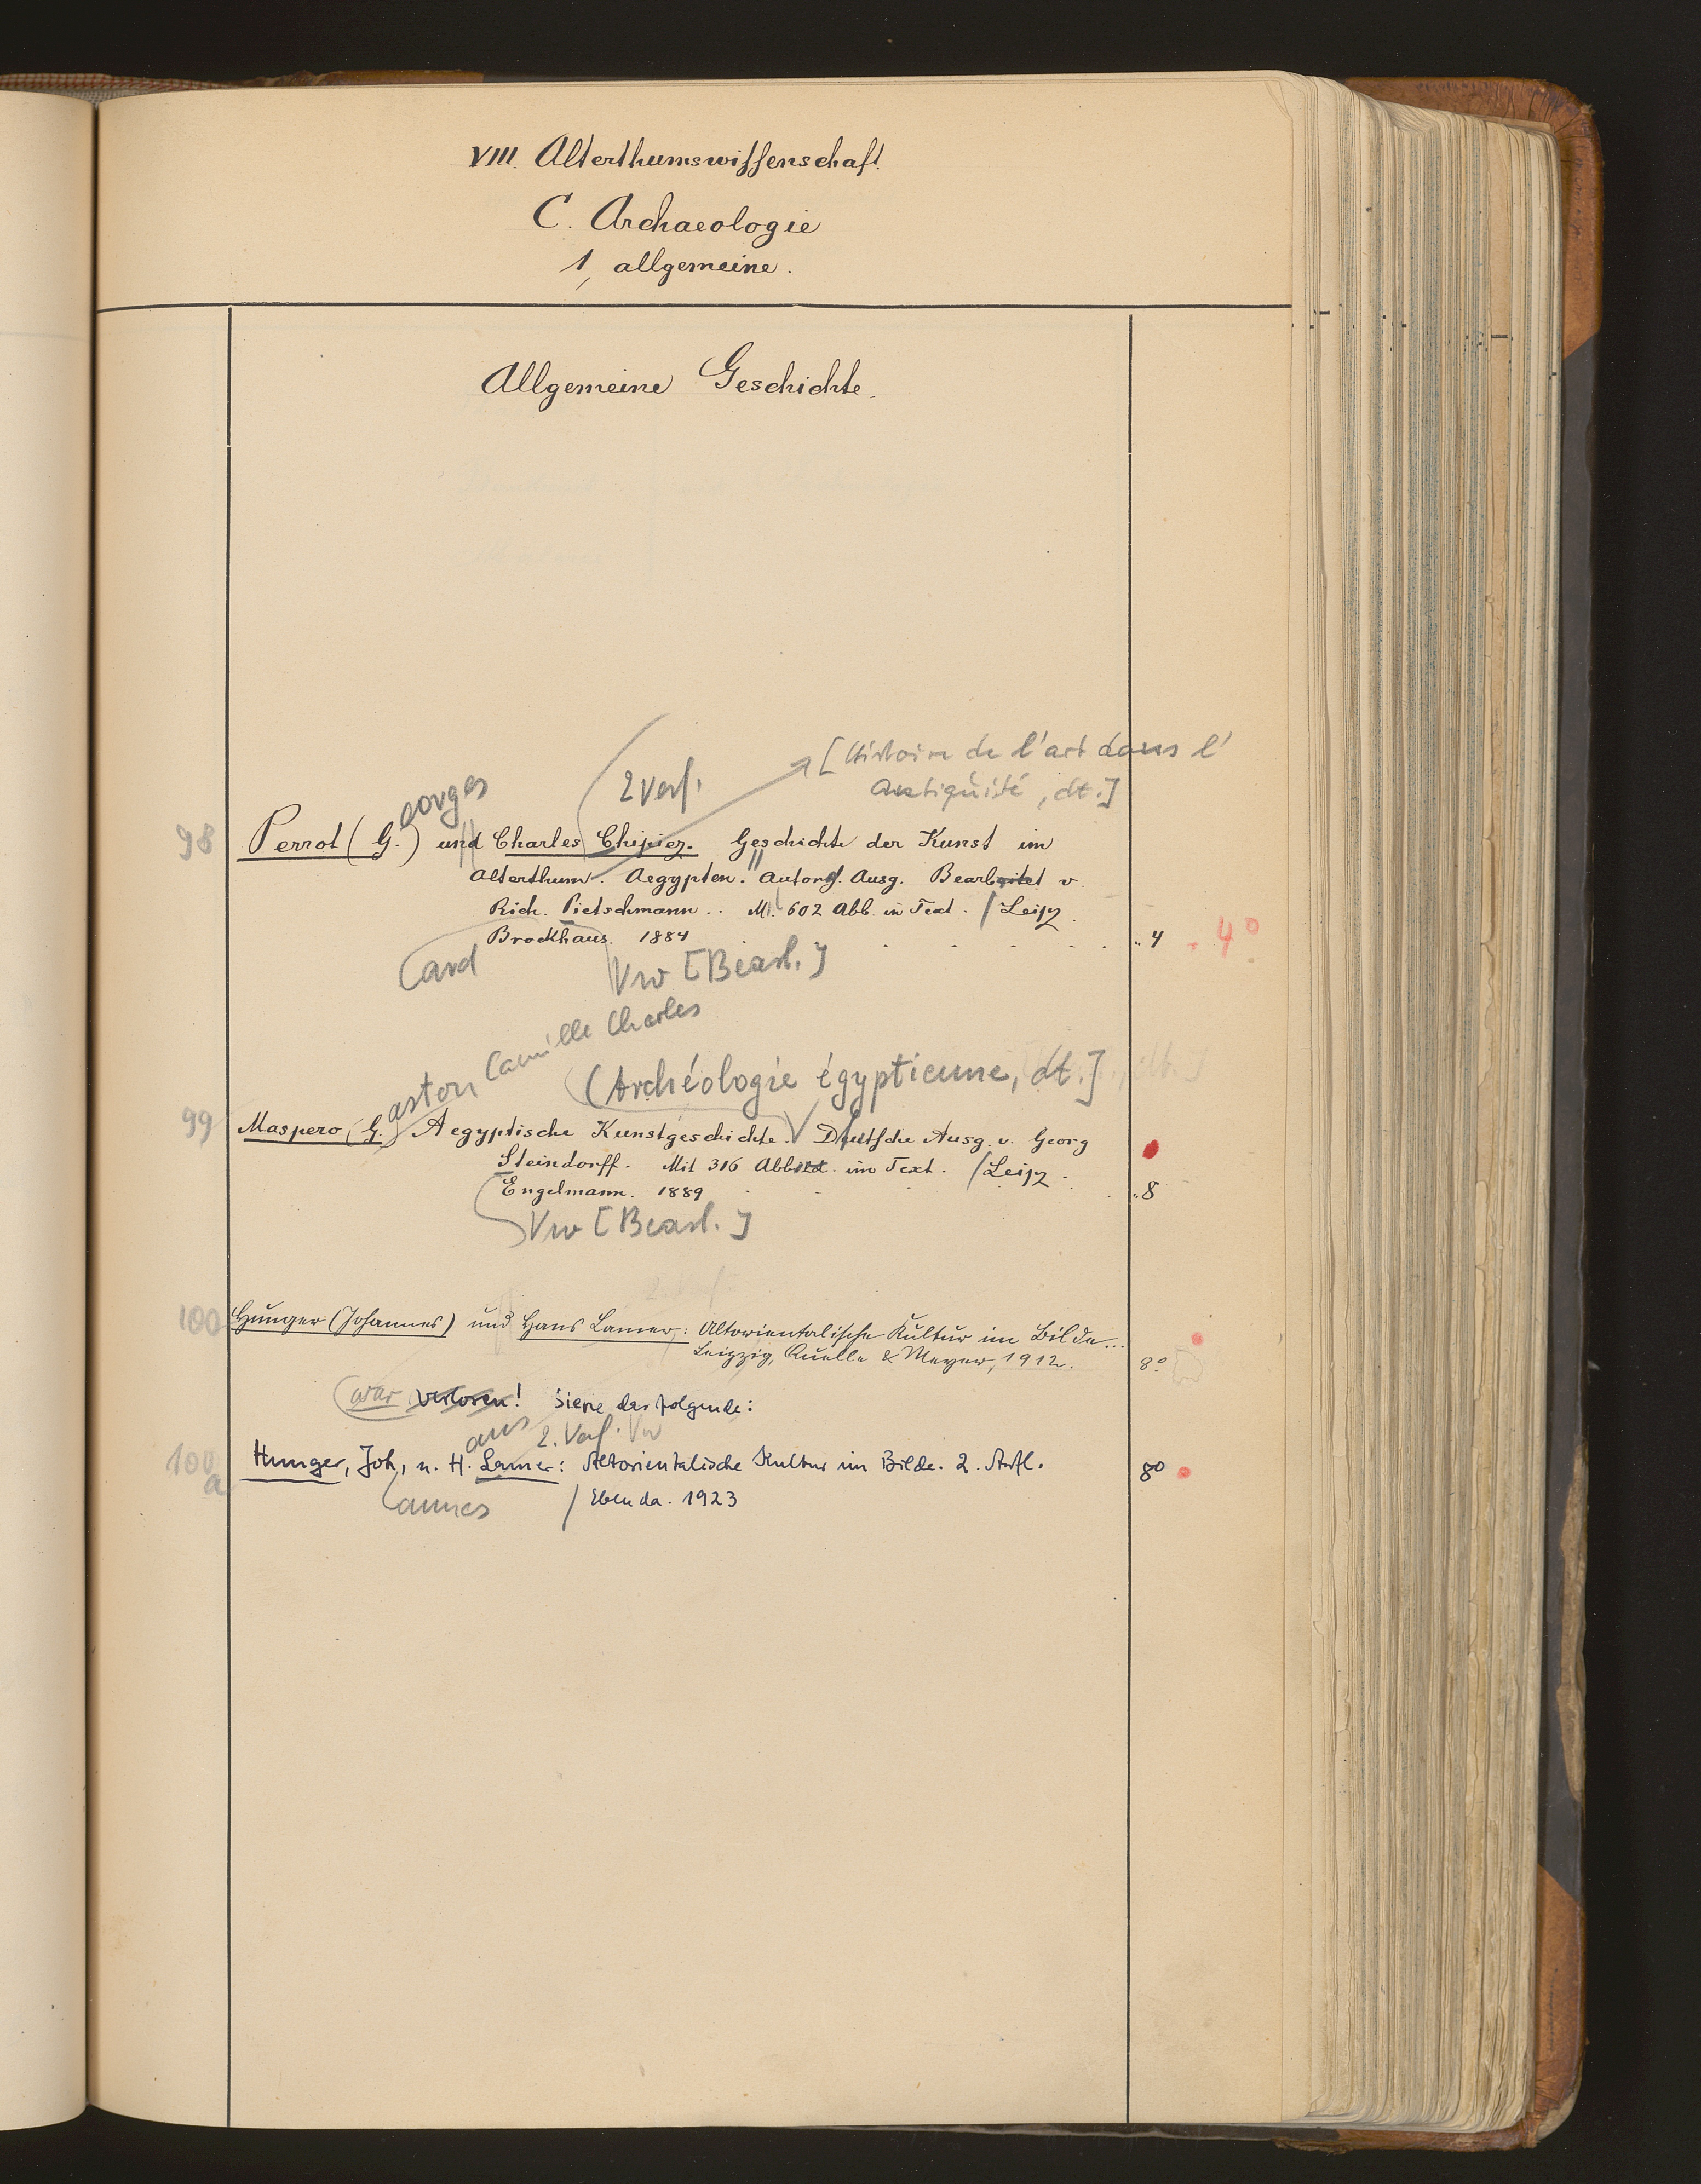 VIII. Alterthumswissenschaft.
C. Archaeologie
1, allgemeine.
Allgemeine Geschichte.
[Histoire de l'art dans l'
Antiquité, dt.]
eorges
2 Verf.
98 Perrot (G.) und Charles Chipiez. Geschichte der Kunst im
Alterthum. Aegypten. Autoris. Ausg. Bearbeitet v.
Rich. Pietschmann.. M. 602 Abb. in Text. / Leipz.
Brockhaus. 1884 . . . . . „ 4 4°
ard
Vw [Bearb.]
aston Camille Charles
(Archéologie égyptienne, dt.]
99 Maspero (G.) Aegyptische Kunstgeschichte. Deutsche Ausg. v. Georg
Steindorff. Mit 316 Abbild. im Text. / Leipz.
Engelmann. 1889 . . . . „ 8
Vw [Bearb.]
100 Hunger (Johannes) und Hans Lamer: Altorientalische Kultur im Bilde...
Leipzig, Quelle & Meyer, 1912. 8°
(war verloren! Siehe das folgende:
ans 2. Verf. Vw
100a Hunger, Joh, u. H. Lamer: Altorientalische Kultur im Bilde. 2. Aufl. 8°
annes / Ebenda. 1923